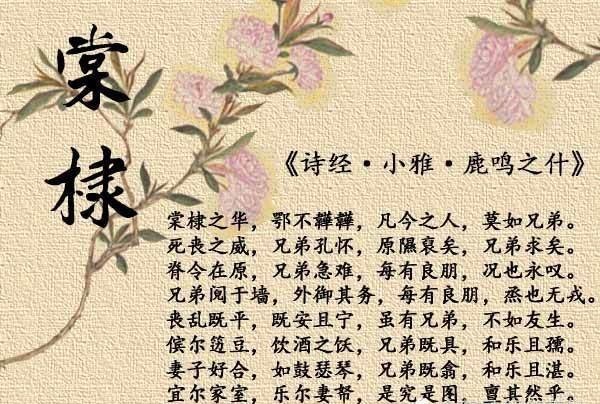 棠棣
《诗经·小雅·鹿鸣之什》
棠棣之华，鄂不韡韡，凡今之人，莫如兄弟。
死丧之威，兄弟孔怀，原隰裒矣，兄弟求矣。
脊令在原，兄弟急难，每有良朋，况也永叹。
兄弟阋于墙，外御其务，每有良朋，烝也无戎。
丧乱既平，既安且宁，虽有兄弟，不如友生。
傧尔笾豆，饮酒之饫，兄弟既具，和乐且孺。
妻子好合，如鼓瑟琴，兄弟既翕，和乐且湛。
宜尔家室，乐尔妻帑，是究是图，亶其然乎。